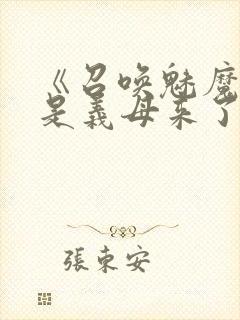 《召喚魅魔
是義母來了
張東安